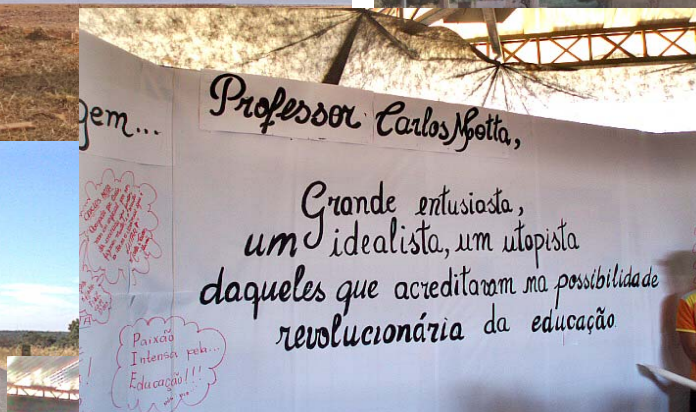 gem...
Professor Carlos Motta,
Grande entusiasta,
um idealista, um utopista
daqueles que acreditavam na possibilidade
revolucionária da educação
Paixão
Intensa pela...
Educação!!!